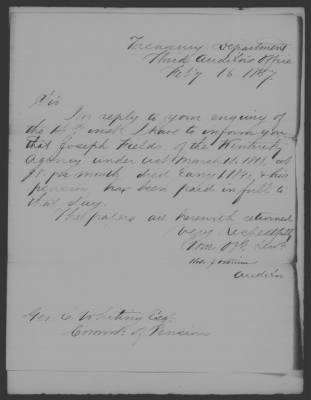 Treasury Department
Third Auditor's Office
Feb'y 16 1847.
Sir
In reply to your enquiry of
the 14th inst. I have to inform you
that Joseph Fields of the Kentucky
Agency under act March 18. 1818, at
$8. per month, died 1841, & his
pension has been paid in full to
that day.
The papers are herewith returned
Very Respectfully
Your Ob. Servt.
Auditor
Geo. C. Whiting Esqr.
Commr. of Pension